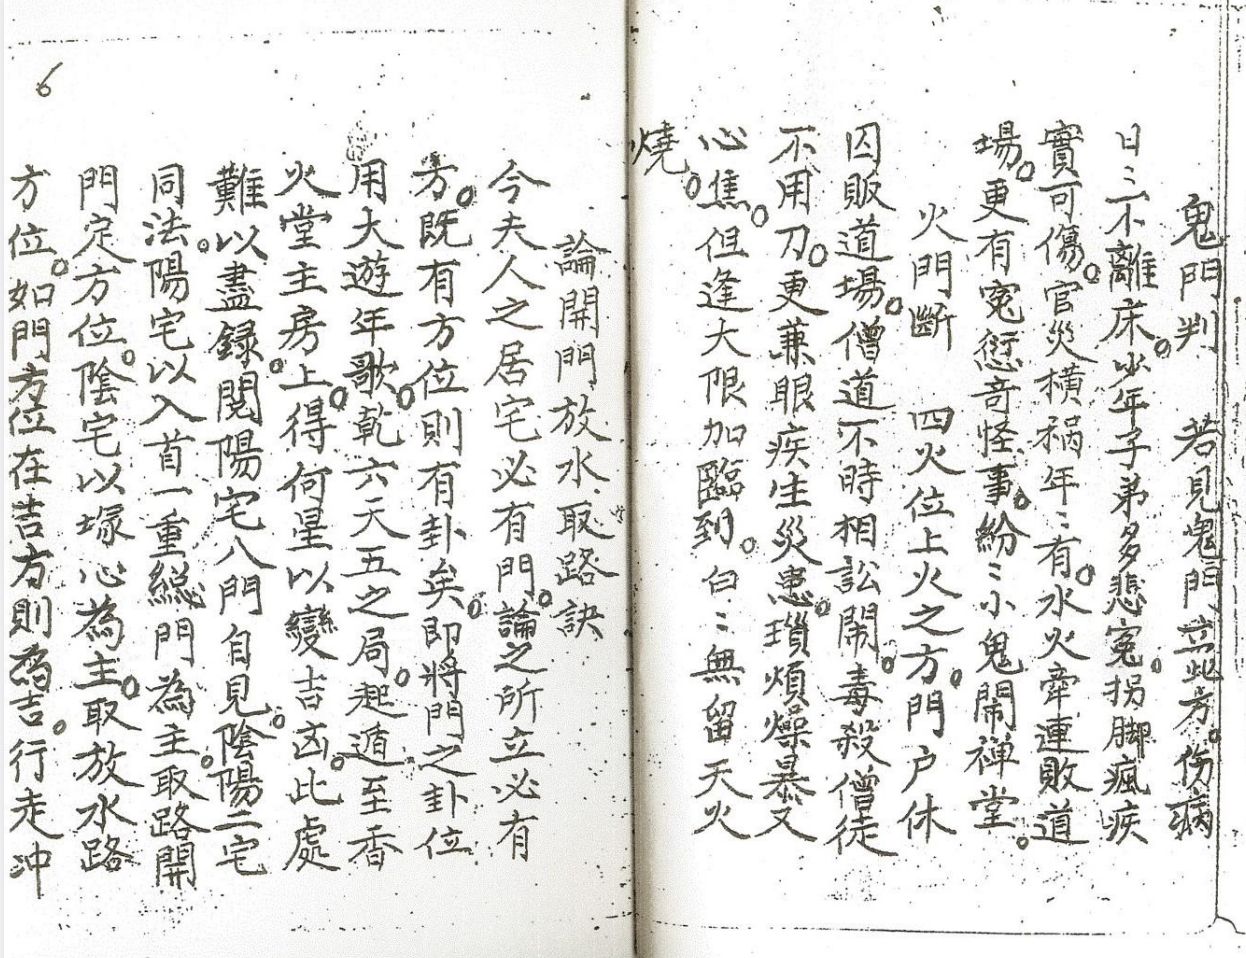 鬼門判　若見鬼門立此方。伤病
日〻不離床。少年子弟多悲寃。拐脚瘋疾
實可傷。官災横禍年〻有。水火牽連敗道
場。更有寃愆奇怪事。紛〻小鬼閙禅堂。
火門斷　四火位上火之方。門户休
囚販道場。僧道不時相訟閙。毒殺僧徒
不用刀。更兼眼疾生災患。瑣煩燥暴又
心焦。但逢大限加臨到。白〻無留天火
燒。
論開門放水取路訣
今夫人之居宅必有門。論之所立必有
方。既有方位則有卦矣。即將門之卦位
用大遊年歌。乾六天五之局。起遁至香
火堂主房上。得何星以變吉凶。此處
難以盡録。閱陽宅八門自見。陰陽二宅
同法。陽宅以入首一重総門為主。取路開
門定方位。陰宅以塚心為主。取放水路
方位。如門方位在吉方則為吉。行走冲
6